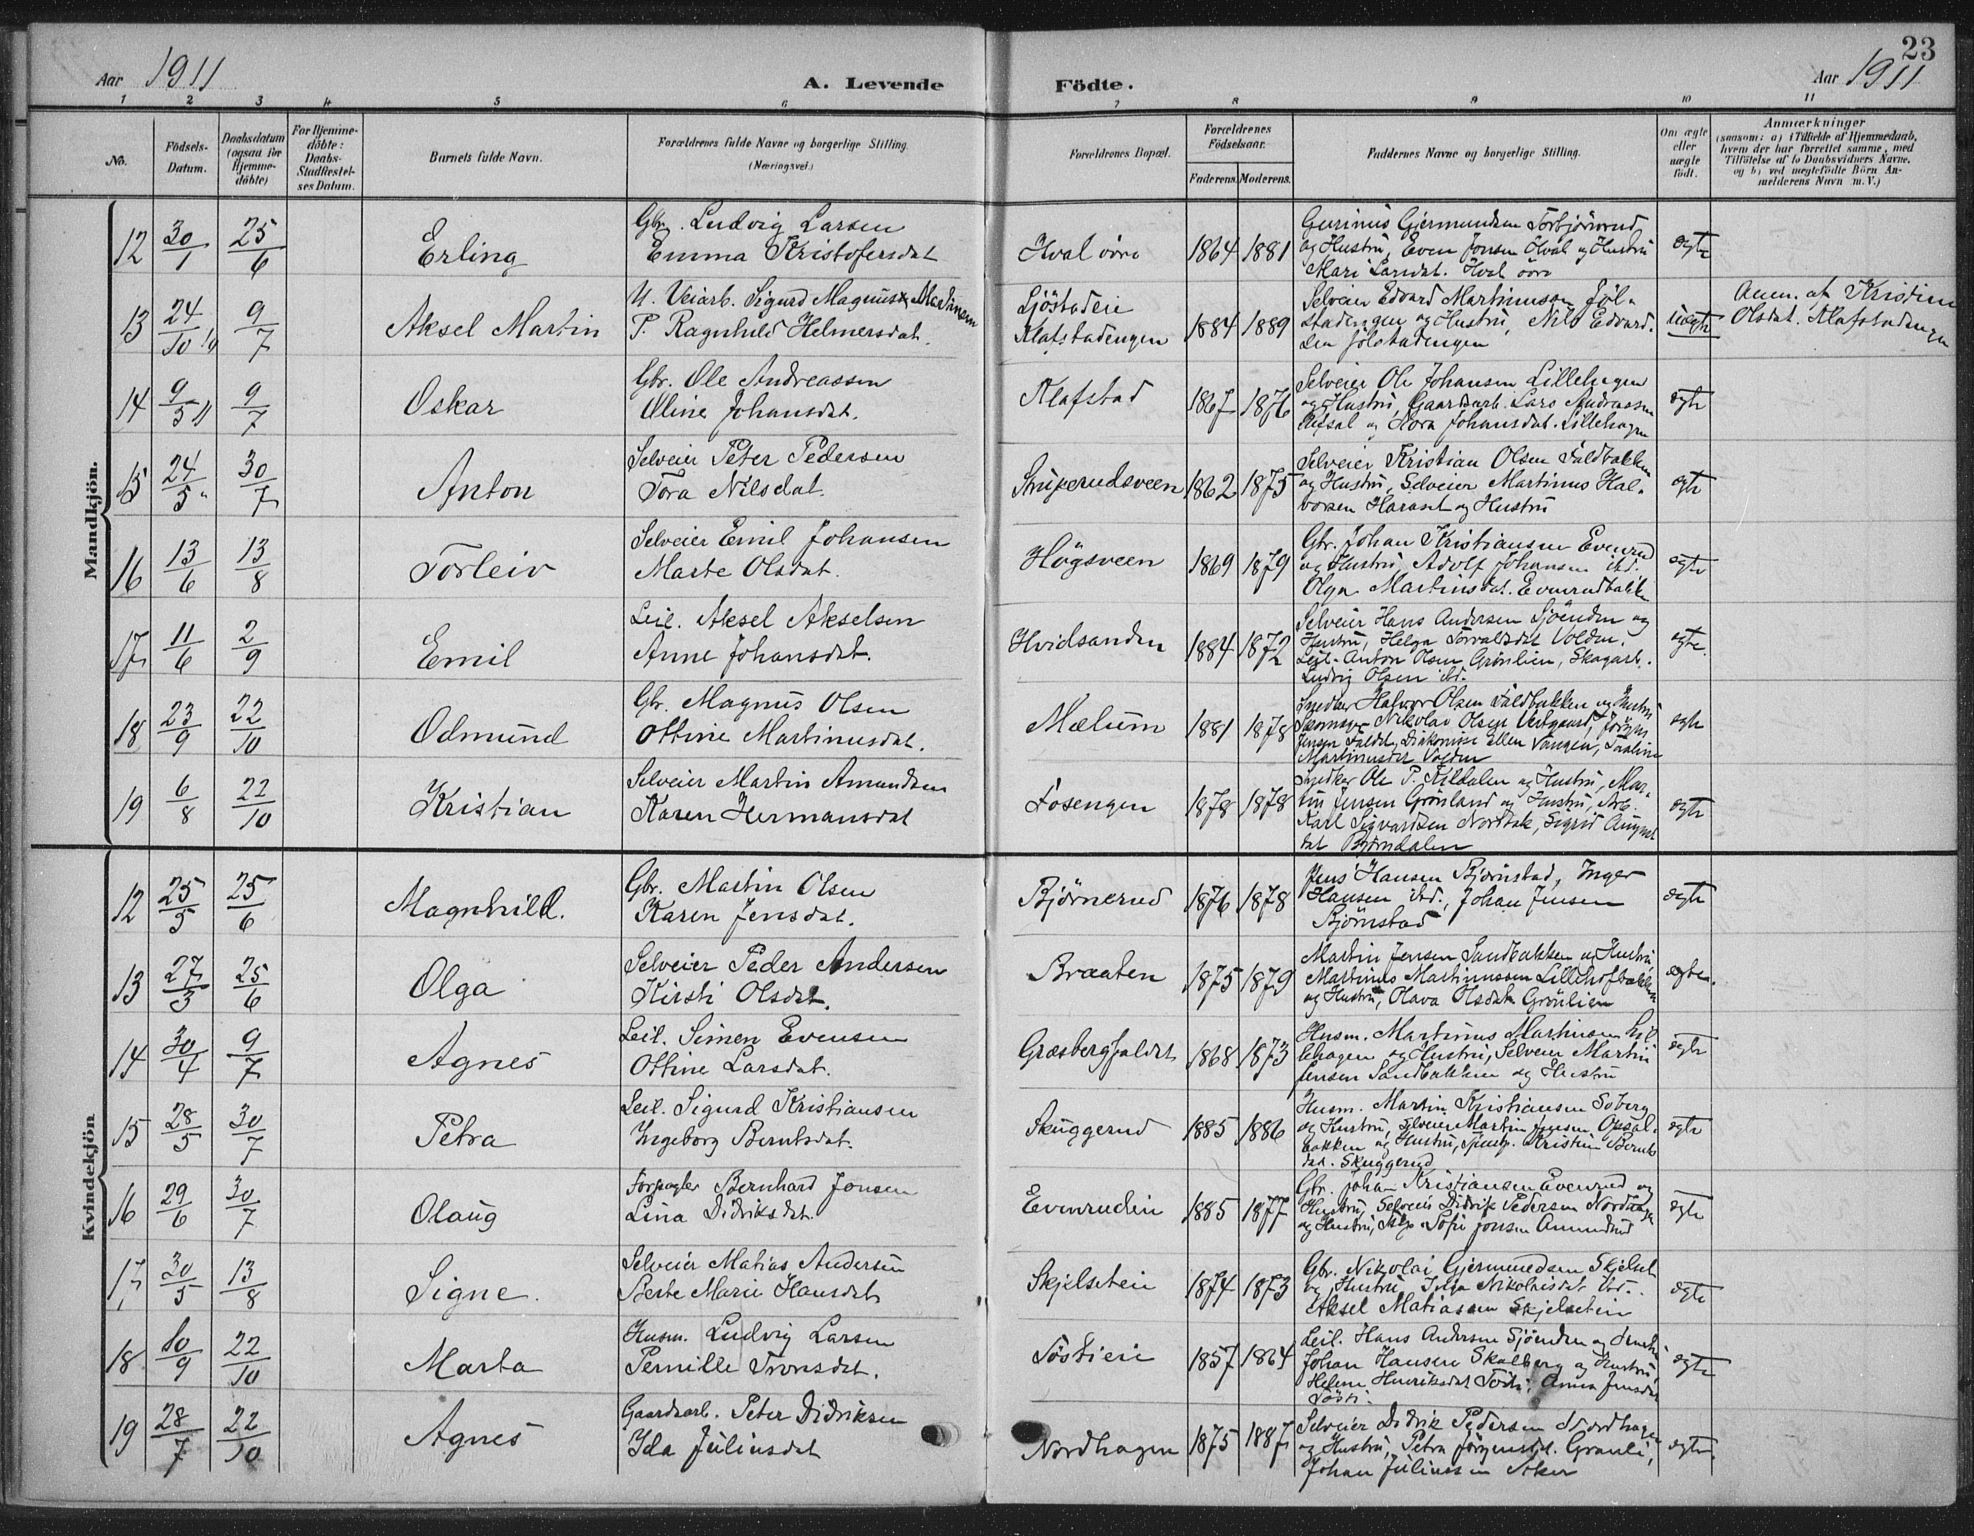 Aar 1911
A. Levende
Födte.
23
Aar 1911
1 2 3 4 5 6 7 8 9 10 11
No.
Födsels-
Datum.
Daabsdatum
(ogsaa for
Hjemme-
döbte)
For Hjemme-
döbte:
Daabs-
Stadfæstel-
ses Datum.
Barnets fulde Navn.
Forældrenes fulde Navne og borgerlige Stilling.
(Næringsvei.)
Forældrenes Bopæl.
Forældrenes
Födselsaar.
Faderens. Moderens.
Faddernes Navne og borgerlige Stilling.
Om ægte
eller
uægte
födt.
Anmærkninger
(saasom: a) i Tilfælde af Hjemmedaab,
hvem der har forrettet samme, med
Tilföielse af to Daabsvidners Navne.
og b) ved uægtefödte Börn An-
melderens Navn m. V.)
Mandkjön.
12 30/1 25/6 Erling
Gbr. Ludvig Larsen
Emma Kristofersdat
Hval övre 1864 1881
Gurinius Gjermundsen Torbjörnrud
og Hustru, Even Jonsen Hval og Hustru
Mari Larsdat. Hval övre
ægte
13 24/10 10 9/7 Aksel Martin
U. Veiarb. Sigurd Magnus Martinsen
P. Ragnhild Helmersdat.
Sjöstadeie
Klafstadengen 1884 1889
Selveier Edvard Martinussen Jöl-
stadengen og Hustru, Nils Edvard-
sen Jölstadengen
uægte
Anm. at Kristine
Olsdat. Klafstadengen
14 9/5 9/7 Oskar
Gbr. Ole Andreassen
Oline Johansdat.
Klafstad 1867 1876
Selveier Ole Johansen Lillehagen
og Hustru, Gaardsarb. Lars Andreassen
og Hora Johansdat. Lillehagen
ægte
15 24/5 30/7 Anton
Selveier Peter Pedersen
Tora Nilsdat.
Struperudsveen 1862 1875
Selveier Kristian Olsen Faldbakken
og Hustru, Selveier Martinus Hal-
vorsen Haraset og Hustru
ægte
16 13/6 13/8 Torleiv
Selveier Emil Johansen
Marte Olsdat.
Högsveen 1869 1879
Gbr. Johan Kristiansen Evenrud
og Hustru, Adolf Johansen ibd.
Olga Martinsdat. Evenrudbakken
ægte
17 11/6 2/9 Emil
Leil. Aksel Akselsen
Anne Johansdat.
Hvidsanden 1884 1872
Selveier Hans Andersen Sjöenden og
Hustru, Helga Torvaldsdat Volden.
Leil. Anton Olsen Grönlien, Skogarb.
Ludvig Olsen ibd.
ægte.
18 23/9 22/10 Odmund
Gbr. Magnus Olsen
Ottine Martinusdat.
Mælum 1881 1878
Snedker Halvor Olsen Faldbakken og Hustru
Nikolai Olsen Vestgaard, Jörgen
Jensen Faldet, Diakonisse Ellen Vangen,
Martinusdat Volden
ægte
19 6/8 22/10 Kristian
Selveier Martin Amundsen
Karen Hermansdat
Fosengen 1878 1878
Snedker Ole P. Kildalen og Hustru, Mar-
tin Jensen Grönland og Hustru, Arb.
Karl Sigvardsen Nordbak, Sigrid August
dat Björndalen
ægte
Kvindekjön
12 25/5 25/6 Magnhild.
Gbr. Martin Olsen
Karen Jensdat.
Björnerud 1876 1878
Jens Hansen Björnstad, Inger
Hansen ibd., Johan Jensen
Björnstad
ægte
13 27/3 25/6 Olga
Selveier Peder Andersen
Kirsti Olsdat.
Braaten 1875 1879
Martin Jensen Sandbakken og Hustru
Martinus Martinussen Lillehofbakken
og Hustru, Olava Olsdat. Grönlien
ægte.
14 30/4 9/7 Agnes
Leil. Simen Evensen
Ottine Larsdat.
Græsbergfaldet 1868 1873
Husm. Martinus Martinsen Lil-
lehagen og Hustru, Selveier Martin
Jensen Sandbakken og Hustru
ægte
15 28/5 30/7 Petra
Leil. Sigurd Kristiansen
Ingeborg Berntsdat.
Skuggerud 1885 1886
Husm. Martin Kristiansen Soberg
og Hustru, Selveier Martin Jensen Opsal-
bakken og Hustru, Kristine Bernts
dat. Skuggerud
ægte
16 29/6 30/7 Olaug
Forpagter Bernhard Jonsen
Lina Didriksdat.
Evenrudeie 1885 1877
Gbr. Johan Kristiansen Evenrud og
Hustru, Selveier Didrik Pedersen Nordhagen
og Hustru, Sofie Jonsen Amundrud
ægte
17 30/5 13/8 Signe.
Selveier Matias Andersen
Berte Marie Hansdat
Skjelseteie 1874 1873
Gbr. Nikolai Gjermundsen Skjelset
og Hustru, Inga Nikolaisdat ibd.
Aksel Matiassen Skjelseteie
ægte
18 10/9 22/10 Marta
Husm. Ludvig Larsen
Pernille Tronsdat.
Töstieie 1857 1864
Leil. Hans Andersen Sjöenden og Hustru
Johan Hansen Skalberg og Hustru,
Helene Henriksdat Tösti, Anna Jensdat
Tösti.
ægte
19 28/7 22/10 Agnes
Gaardsarb. Peter Didriksen
Ida Juliusdat
Nordhagen 1875 1887
Selveier Didrik Pedersen Nordhagen
og Hustru, Petra Jörgensdat. Granli,
Johan Juliussen Aker
ægte.